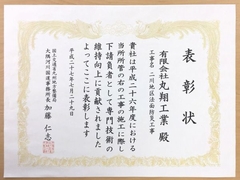 表彰状
有限会社丸翔工業 殿
工事名 二川地区法面防災工事
貴社は平成二十六年度における
当所所管の右の工事の施工に際し
下請負者として専門技術の
維持向上に貢献されました
よってここに表彰します
平成二十七年七月二十九日
国土交通省九州地方整備局
大隅河川国道事務所長 加藤 仁志